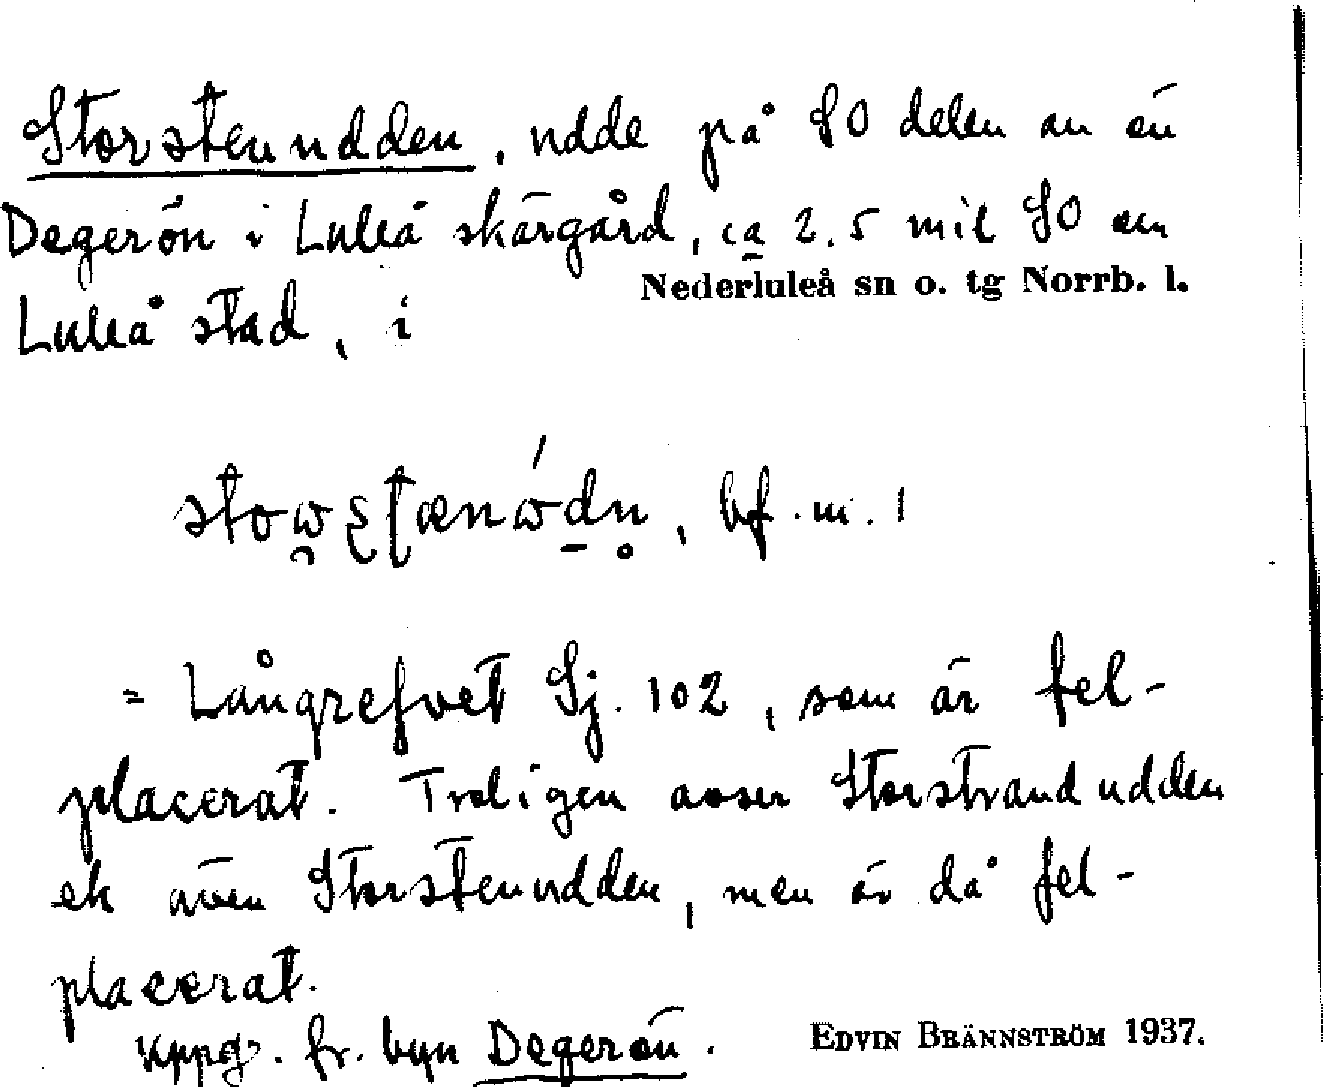 Storstenudden, udde på SO delen av ön
Degerön i Luleå skärgård, ca 2,5 mil SO om
Nederluleå sn o. tg Norrb. l.
Luleå stad, i
bf. m. 1
= Långrefvet Sj. 102, som är fel-
placerat. Troligen avser Storstrandudden
ek även Storstenudden, men är då fel-
placerat.
Uppg. fr. byn Degerön.
EDVIN BRÄNNSTRÖM 1937.